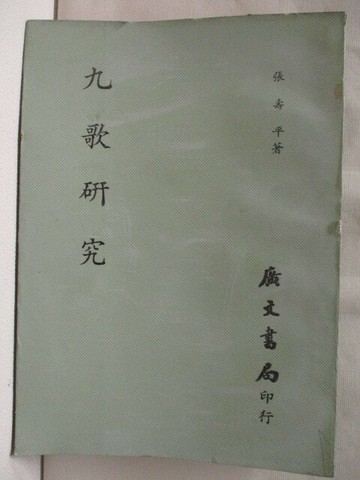 張壽平著
九歌研究
廣文書局印行